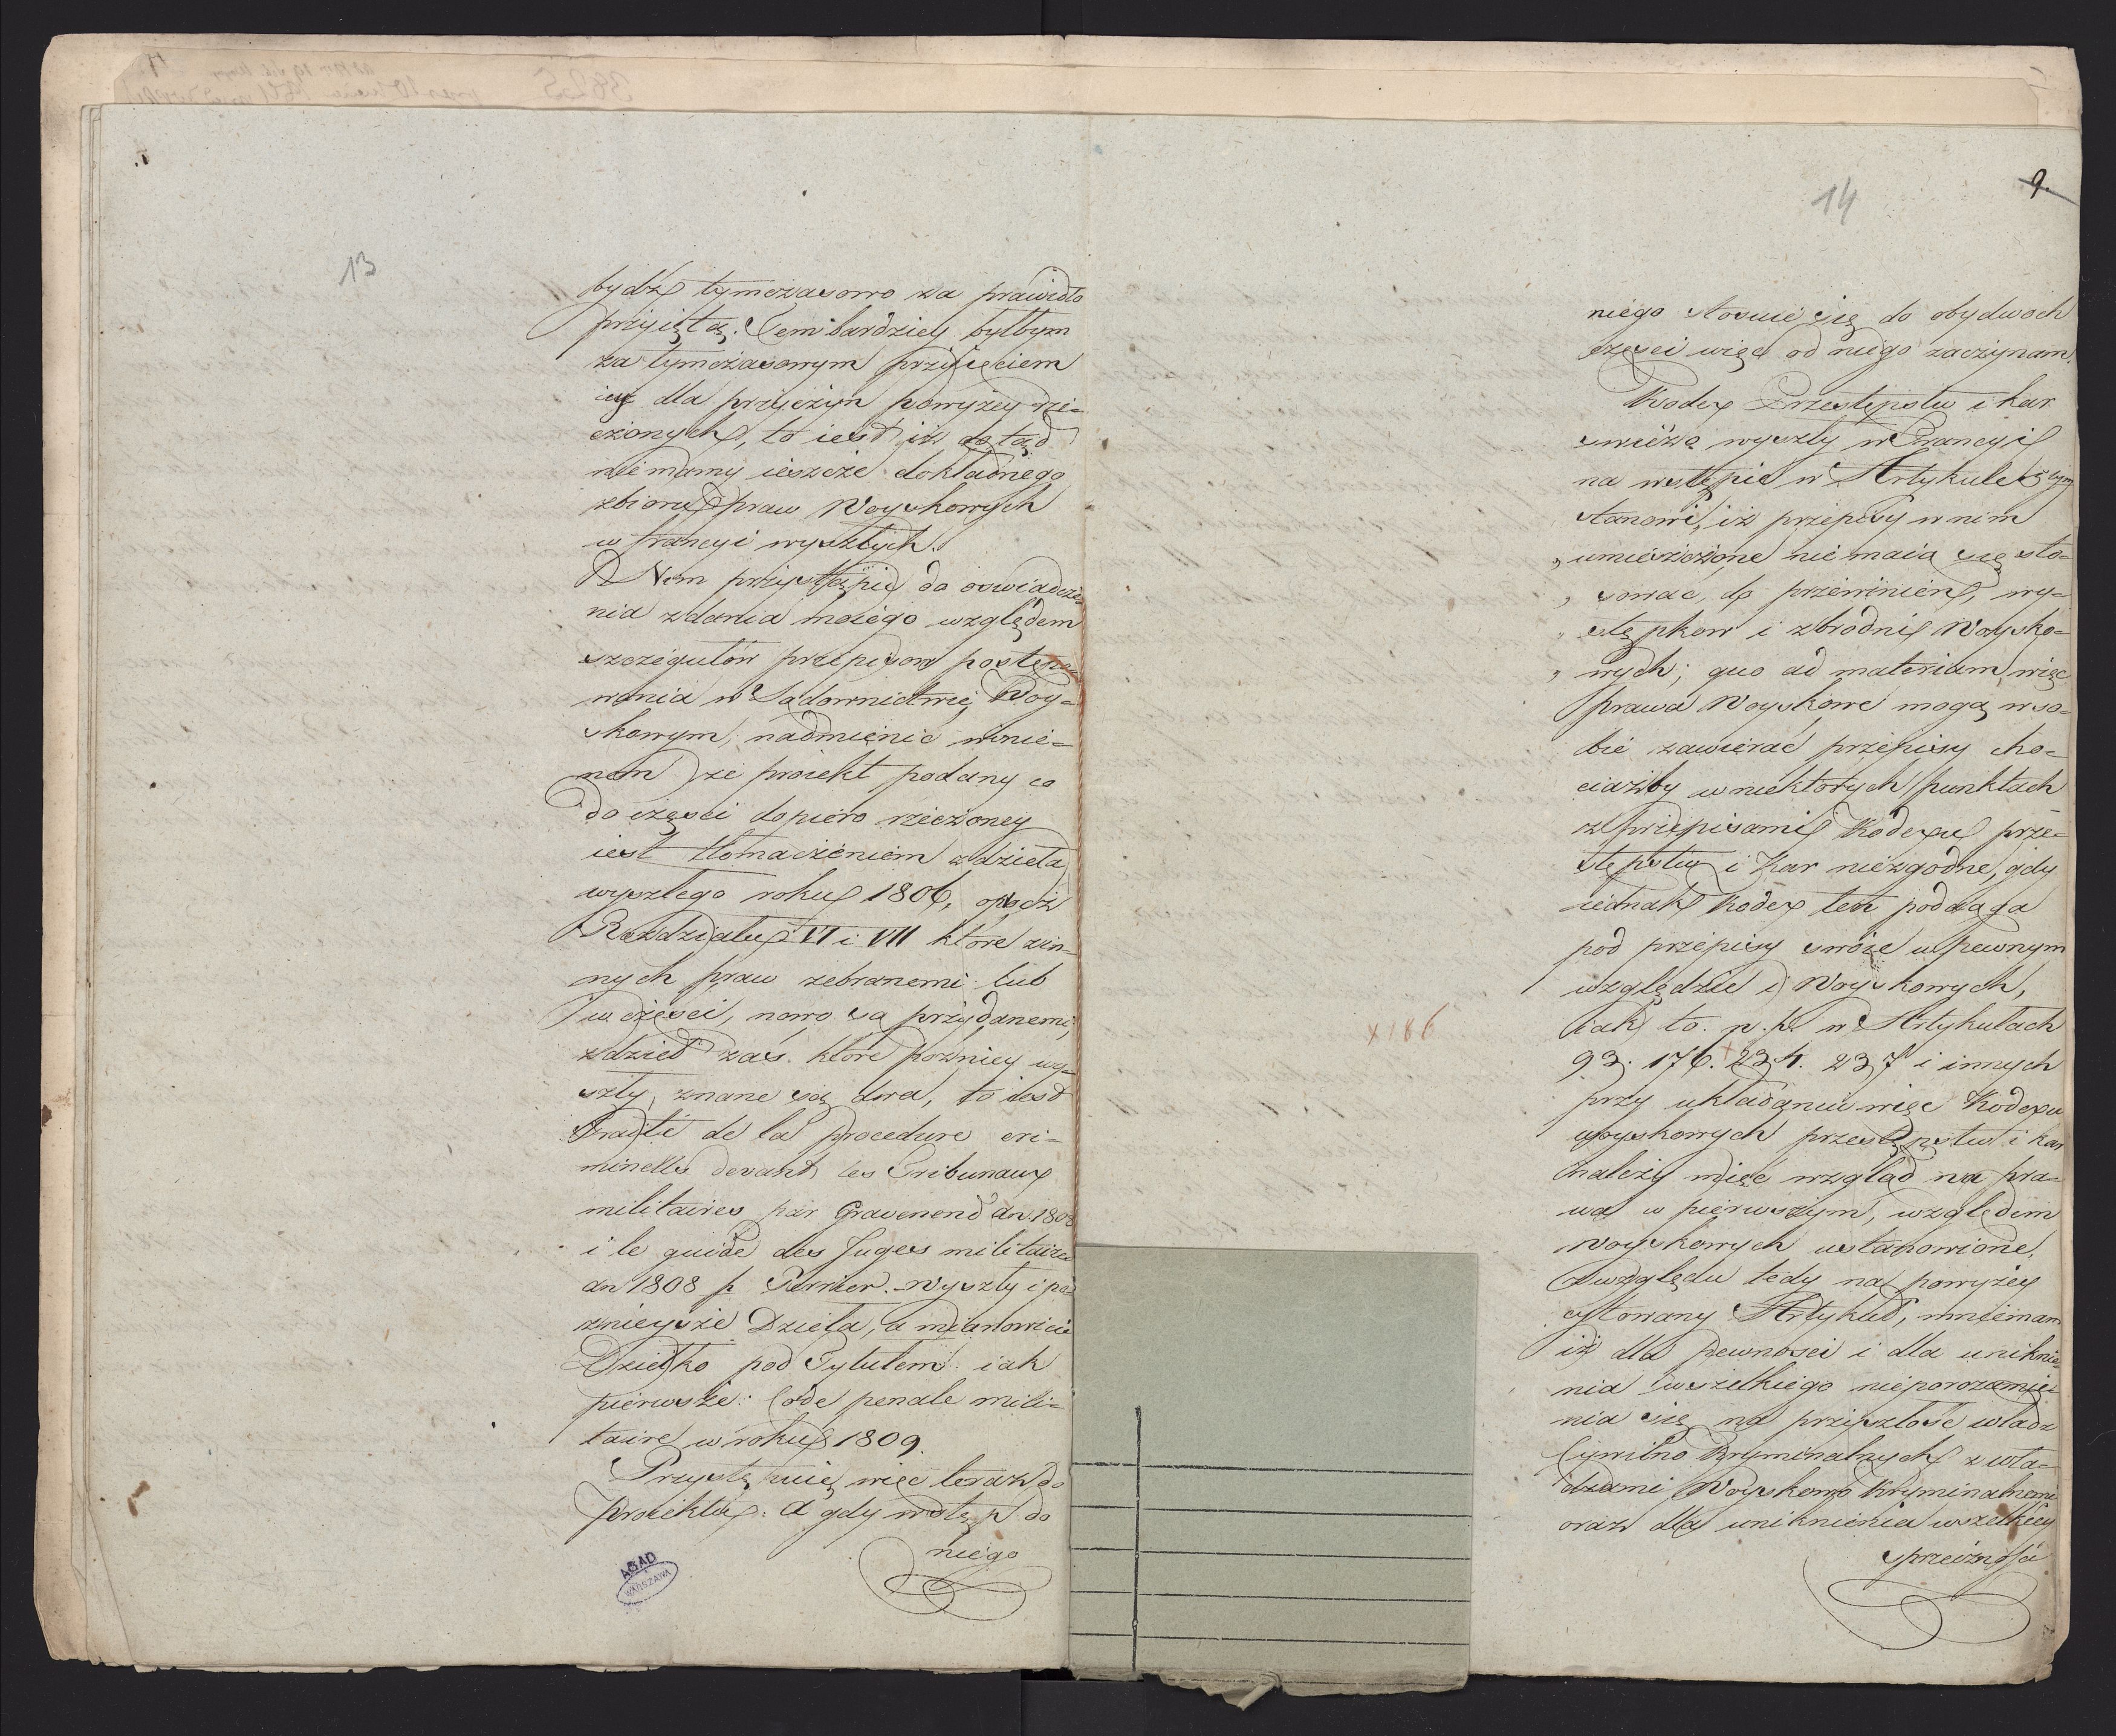 13
bydź tymczasowo za prawidło
przyiętą. Tem bardziey byłbym
za tymczasowym przyięciem
iey dla przyczyn powyżey rze-
czonych, to iest iż dotąd
nie mamy ieszcze dokładnego
zbioru praw Woyskowych
w francyi wyszłych.
Nim przystąpię do oswiadcze-
nia zdania moiego względem
szczegułów przepisow postępo-
wania w Sądownictwie Woy-
skowym, nadmienić winie-
nem że proiekt podany co
do częsci dopiero rzeczoney
iest tłomaczeniem z dzieła
wyszłego roku 1806, oprócz
Rozdziału VI i VII które z in-
nych praw zebranemi lub
w częsci, nowo są przydanemi;
z dzieł zaś które pozniey wy-
szły, znane są dwa, to iest
Traité de la procedure cri-
minelle devant les Tribunaux
militaires par Gravenend an 1808
i le guide des Juges militaires
an 1808 p. Perrier. Wyszły i pó-
znieysze Dzieła, a mianowicie
Dziełko pod Tytułem iak
pierwsze: Code penale mili-
taire w roku 1809.
Przystępuię więc teraz do
proiektu: a gdy wstęp do
niego
AGAD
WARSZAWA
14
9.
niego stosuie się do obydwoch
częsci więc od niego zaczynam.
Kodex Przestępstw i kar
swieżo wyszły w Francyi
na wstępie w Artykule 5tym
stanowi, iż przepisy w nim
„ umieszczone nie maią się sto-
„ sować do przewinien, wy-
„ stępkow i zbrodni Woysko-
„ wych; quo ad materiam więc
prawa Woyskowe mogą w so-
bie zawierać przepisy cho-
ciażby w niektórych punktach
z przepisami Kodexu prze-
stępstw i Kar niezgodne, gdy
iednak Kodex ten podciąga
pod przepisy swoie w pewnym
względzie i Woyskowych,
iak to n. p. w Artykułach
93. 176. 234. 237 i innych
x 186
przy układaniu więc Kodexu
woyskowych przestępstw i kar
należy mieć wzgląd na pra-
wa w pierwszym, względem
Woyskowych ustanowione.
Z względu tedy na powyżey
cytowany Artykuł, mniemam
iż dla pewnosci i dla uniknie-
nia wszelkiego nieporozumie-
nia się na przyszłość władz
Cywilno Kryminalnych z wła-
dzami Woyskowo Kryminalnemi
oraz dla uniknienia wszelkiey
sprzeczności